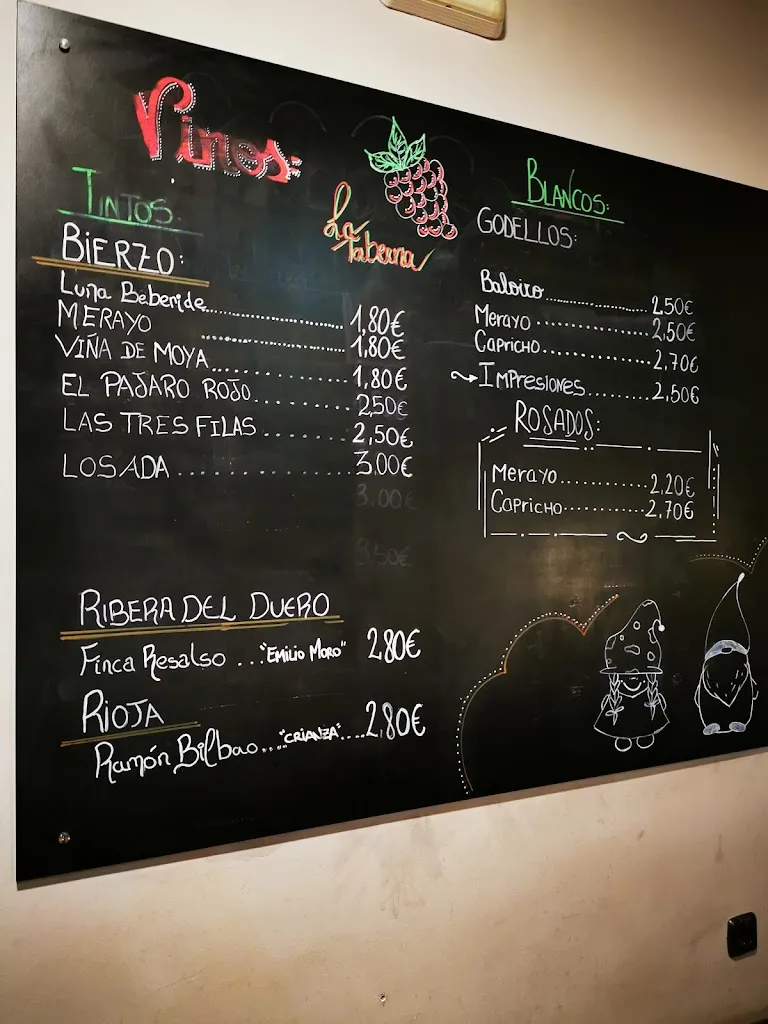 Vinos:
La
Taberna
TINTOS
BIERZO:
Luna Beberide........................1,80€
MERAYO ........................1,80€
VIÑA DE MOYA................1,80€
EL PAJARO ROJO...............2,50€
LAS TRES FILAS..............2,50€
LOSADA........................3,00€
3.00€
3,50€
RIBERA DEL DUERO
Finca Resalso ..."EMILIO MORO" 2,80€
RIOJA
Ramón Bilbao..."CRIANZA"....2,80€
BLANCOS:
GODELLOS:
Baloiro........................2,50€
Merayo...................2,50€
CAPRICHO.................2,70€
IMPRESIONES...........2,50€
ROSADOS:
Merayo.............2,20€
CAPRICHO............2,70€